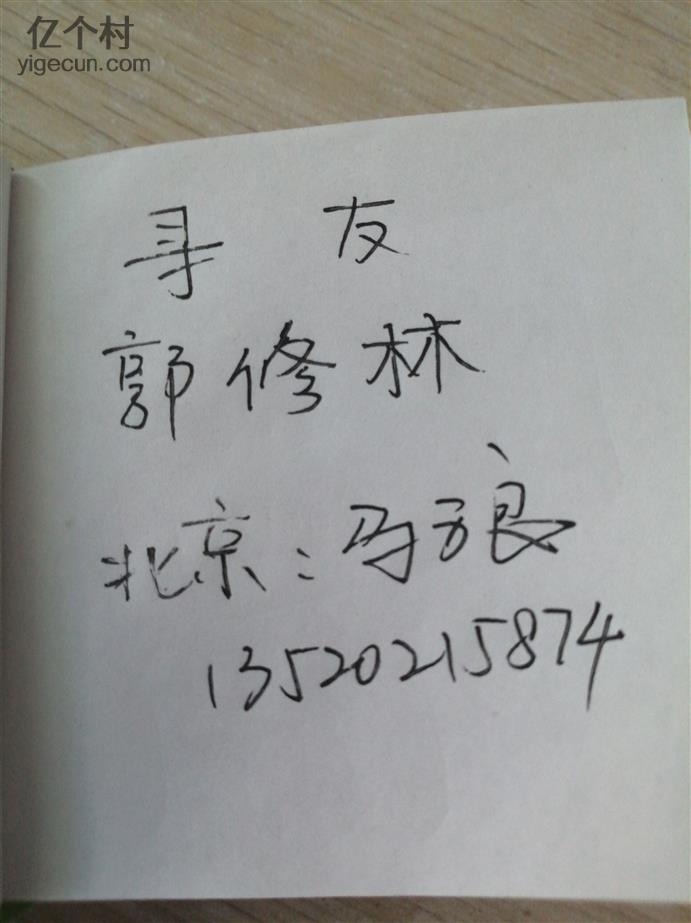 亿个村
yigecun.com
寻 友
郭修林
北京：马万良
13520215874